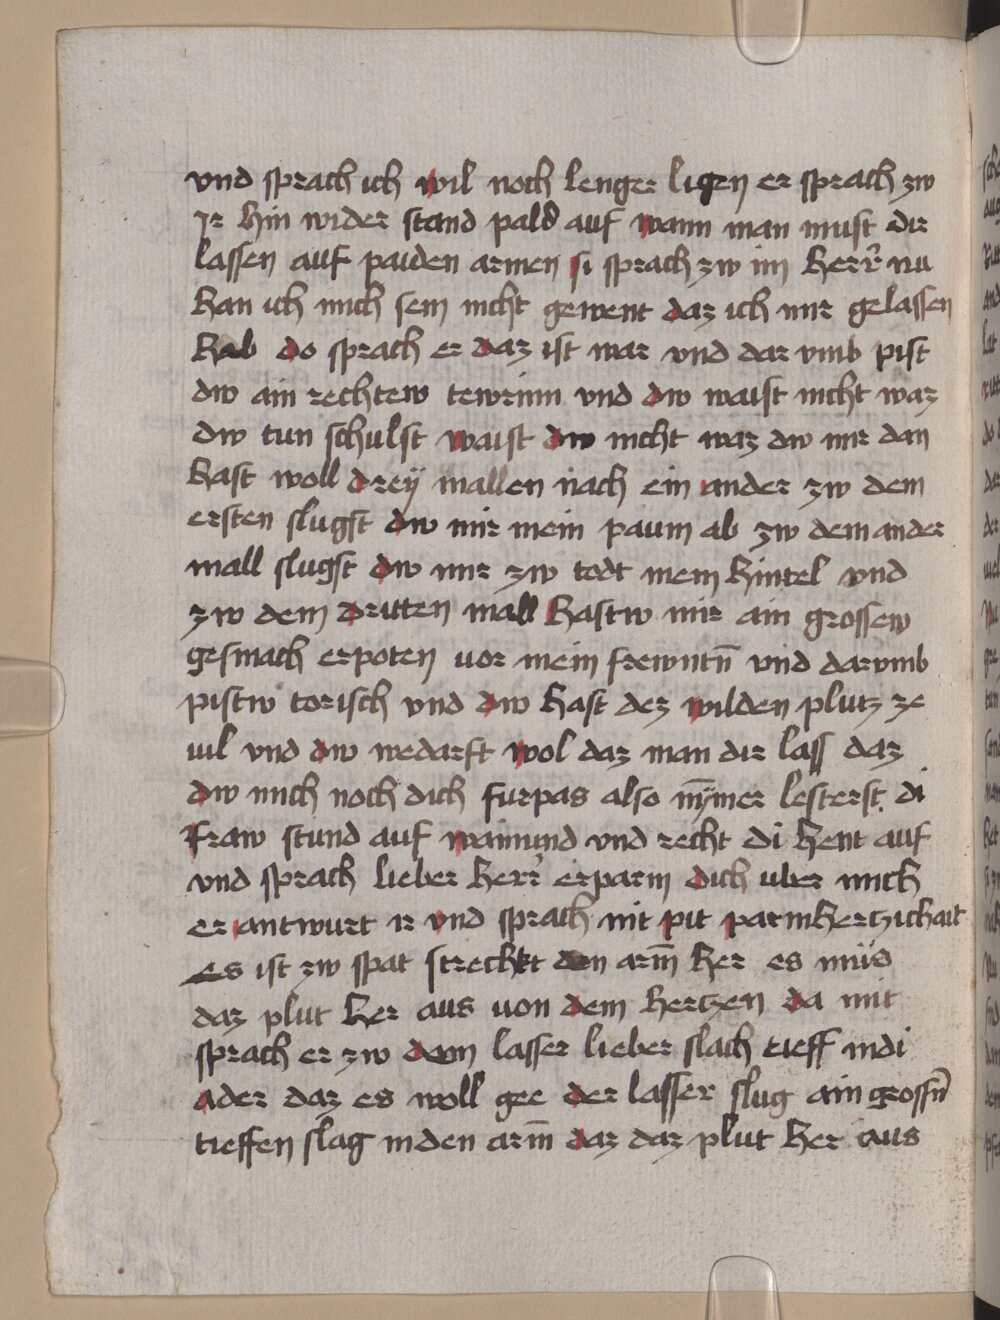 vnd sprach ich wil noch lenger ligen er sprach zw
Ir hin wider stand pald auf wann man must dir
lassen auf paiden armen si sprach zw im herr̄ nu
han ich mich sein nicht gewent daz ich mir gelassen
hab do sprach er daz ist war vnd dar vmb pist
dw ain rechtew tewrinn vnd dw waist nicht waz
dw tun schulst waist dw nicht waz dw mir dan
hast woll dreÿ mallen nach ein ander zw dem
ersten slugst dw mir mein paum ab zw dem ander
mall slugst dw mir zw todt mein hintel vnd
zw dem dritten mall hastw mir ain grossew
gesmach erpoten vor mein frewntn̄ vnd darvmb
pistw torisch vnd dw hast dez wilden plutz ze
uil vnd dw wedarft wol daz man dir lass daz
dw mich noch dich furpas also nȳmer lesterst di
fraw stund auf wainund vnd recht di hent auf
vnd sprach lieber herr̄ erparm dich uber mich
er antwurt ir vnd sprach nit pit parmhertzichait
es ist zw spat strechkt den arm̄ her es müs
daz plut her aus von dem hertzen da mit
sprach er zw dem lasser lieber slach tieff indi
ader daz es woll gee der lasser slug ain grossn̄
tieffen slag inden arm̄ daz daz plut her aus